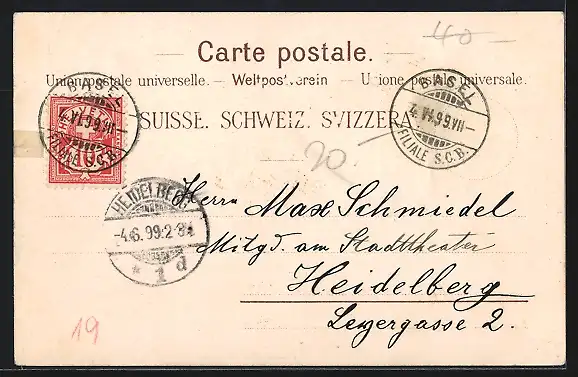 40-
Carte postale.
Union postale universelle. – Weltpostverein – Unione postale universale.
SUISSE. SCHWEIZ. SVIZZERA.
BASEL
4.VI.99.VII–
FILIALE S.C.B.
BASEL
4.VI.99.VII–
FILIALE S.C.B.
10
20
HEIDELBERG
-4.6.99.2-3
* 1 d
Herrn Max Schmiedel
Mitgd. am Stadttheater
Heidelberg
Leyergasse 2.
19